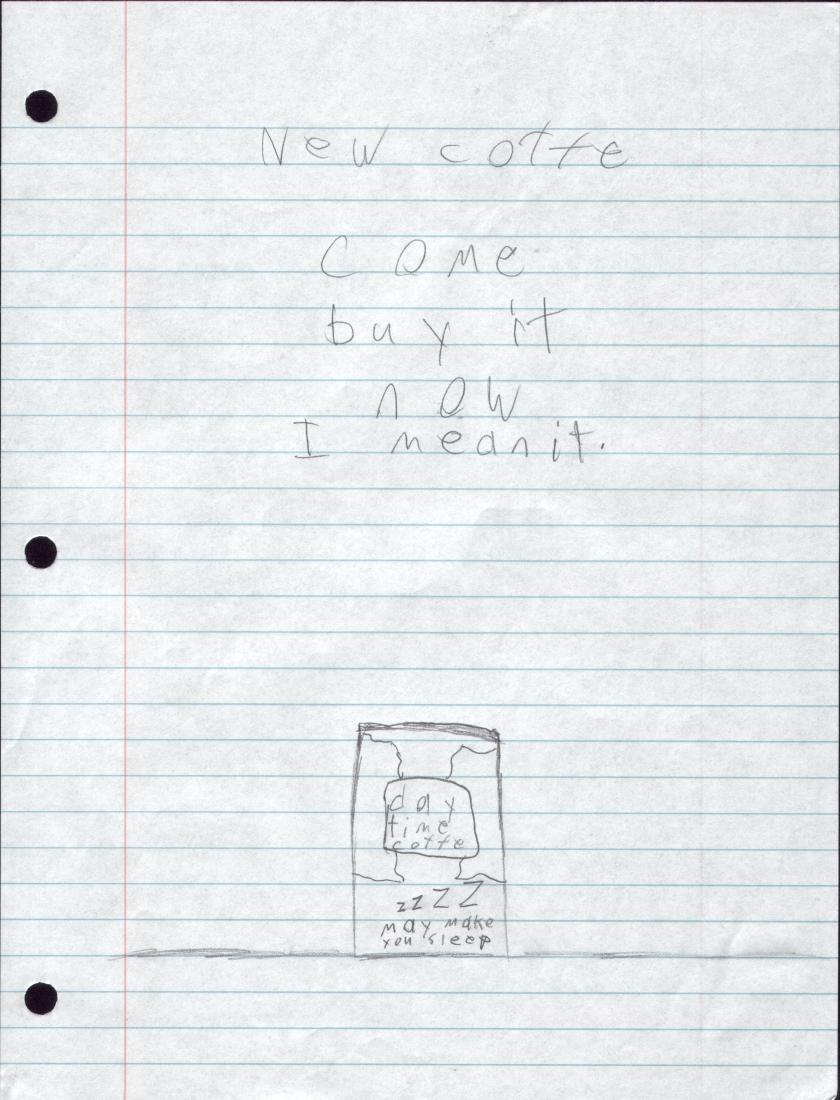 New coffe
come
buy it
now
I mean it.
day
time
coffe
zzZZ
may make
you sleep